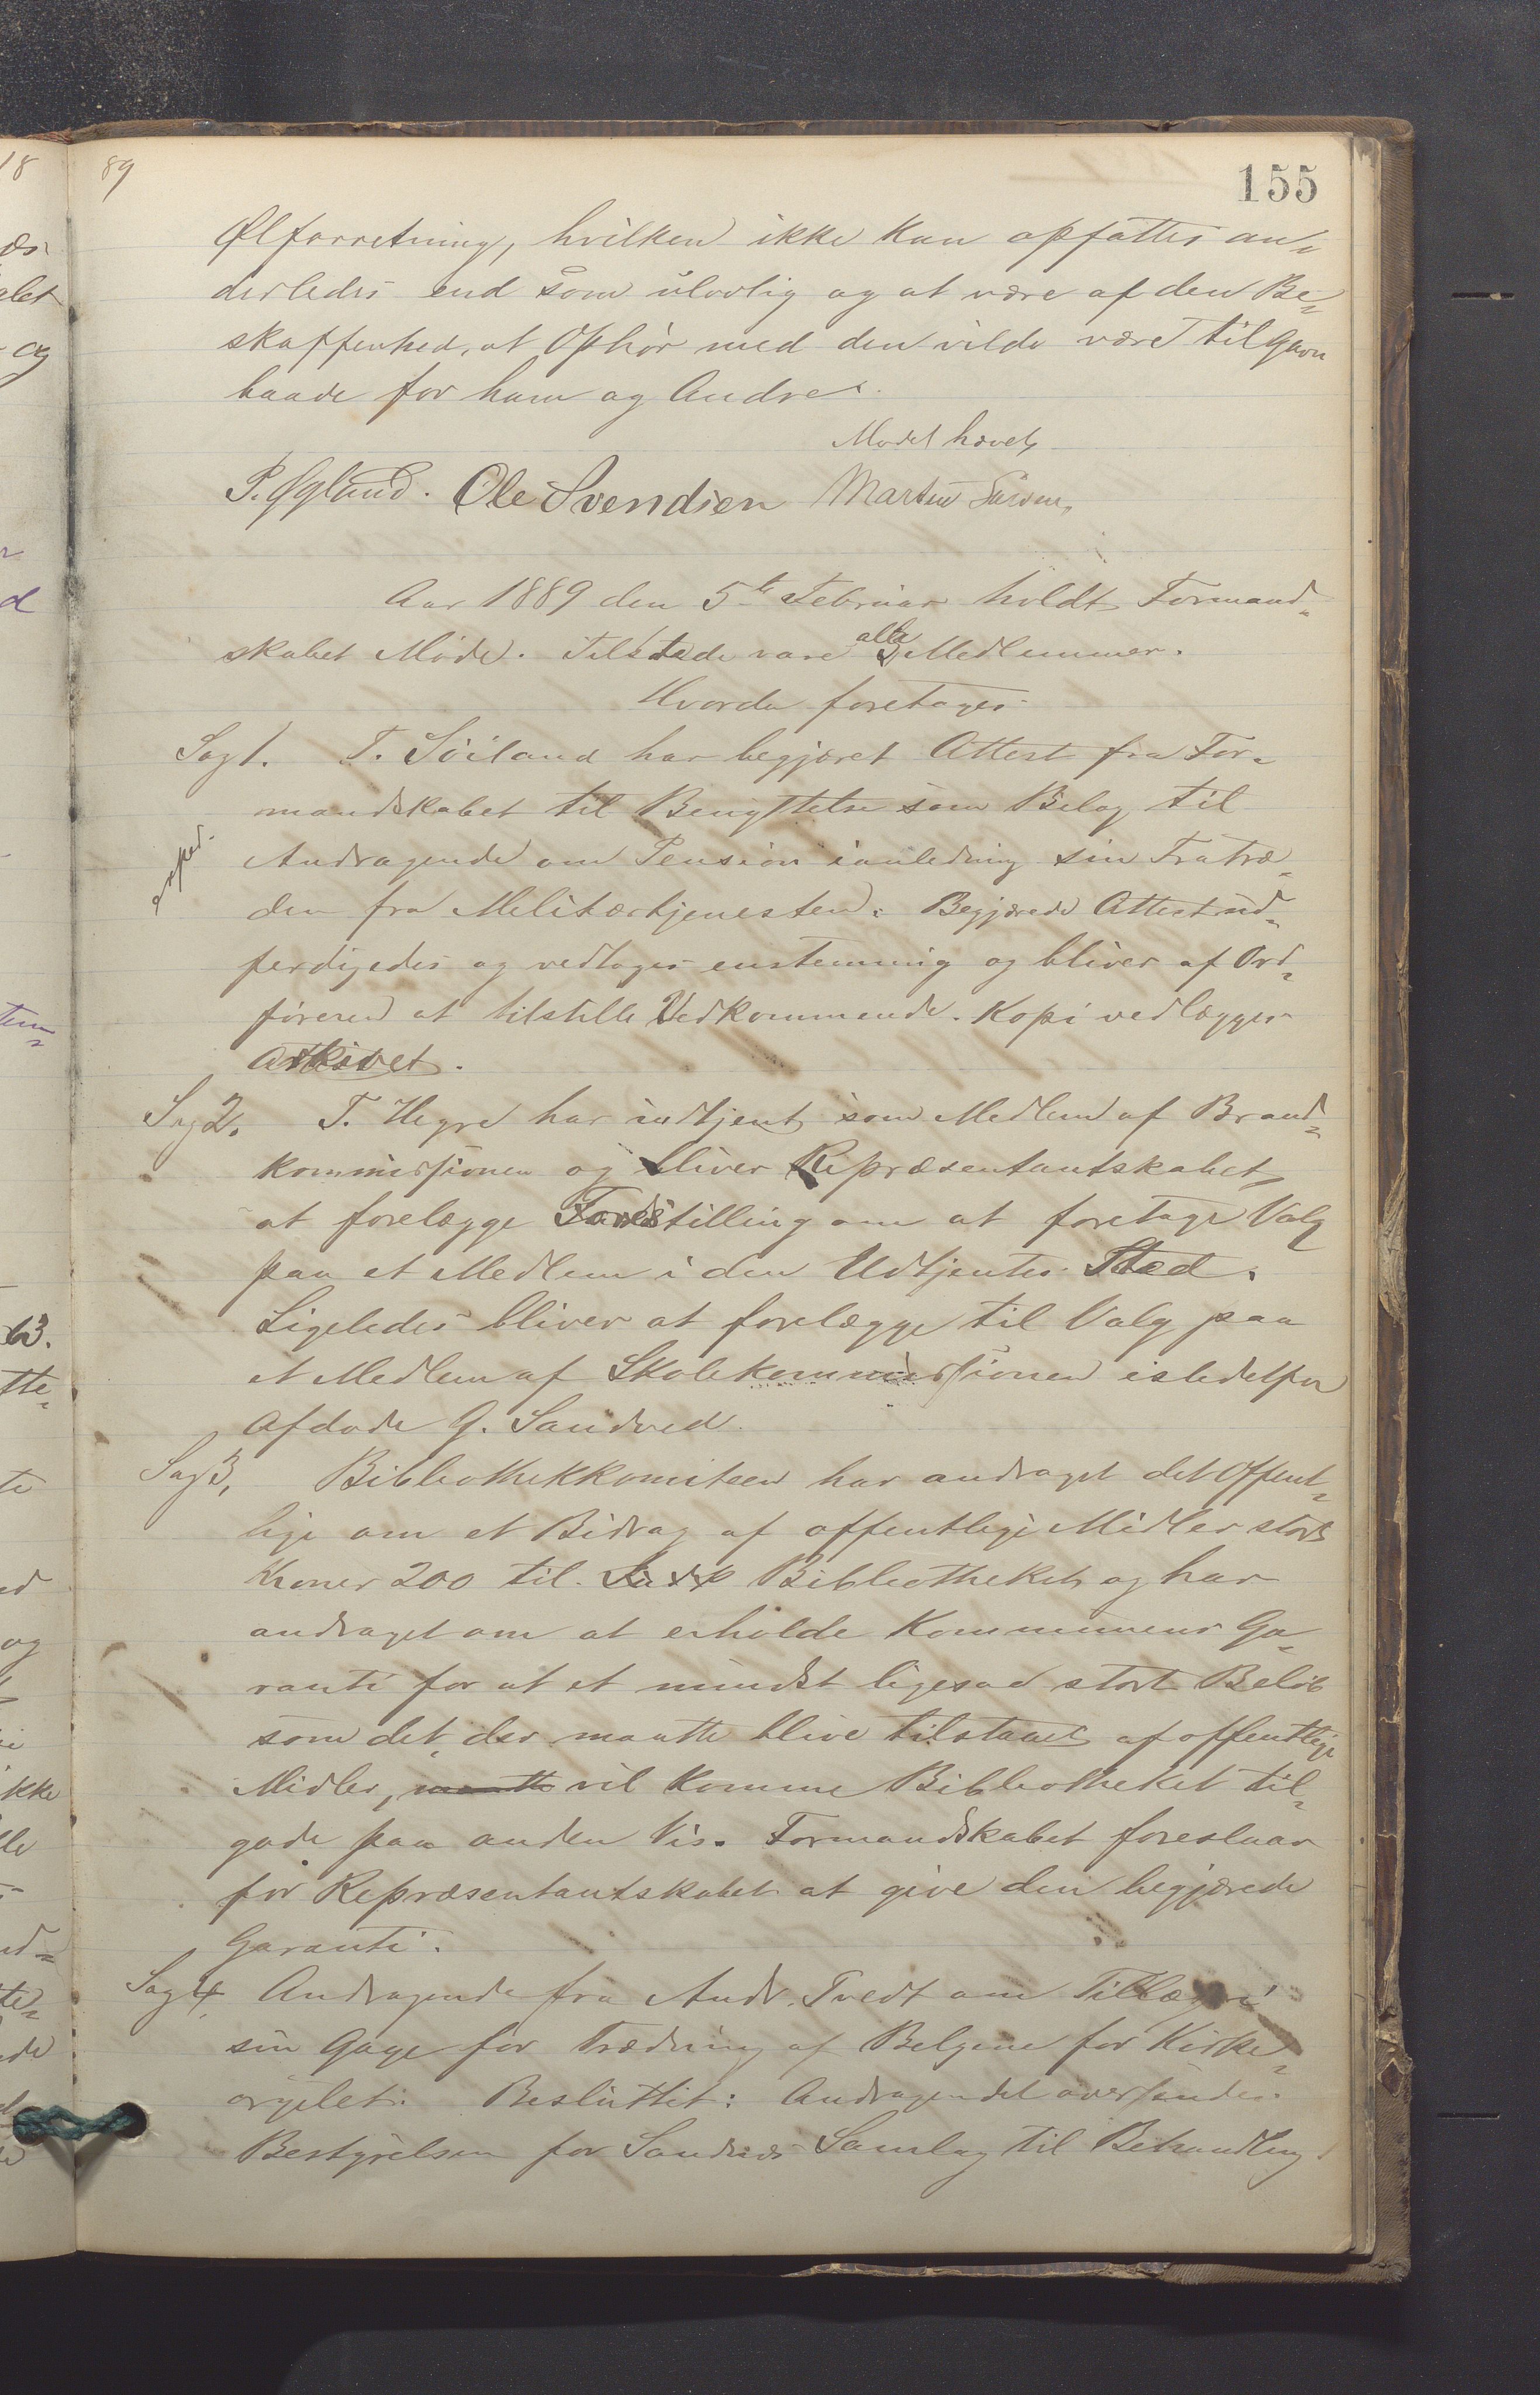 89
155
Ølforretning, hvilken ikke kan opfattes an-
derledes end som ulovlig og at være af den Be-
skaffenhed, at Ophør med den vilde være til Gavn
baade for ham og Andre.
Mødet hævet,
P. Øgland. Ole Svendsen Martin
Aar 1889 den 5te Februar holdt Formand-
skabet Møde. Tilstede vare alle Medlemmer.
Hvorda foretoges
Sag 1. T. Söiland har begjæret Attest fra For-
mandskabet til Benyttelse som Bilag til
exped.
Andragende om Pension ianledning sin Fratræ-
den fra Melitærtjenesten. Begjærede Attest ud-
ferdigedes og vedtoges enstemmig og bliver af Ord-
føreren at tilstille Vedkommende. Kopi vedlægges
Arkivet.
Sag 2. T. Hegre har udtjent som Medlem af Brand-
kommissionen og bliver Repræsentantskabet
at forelægge Forestilling om at foretage Valg
paa et Medlem i den Udtjentes Sted.
Ligeledes bliver at forelægge til Valg paa
et Medlem af Skolekommissionen istedetfor
Afdøde G. Sandved.
Sag 3, Bibliothekkomiteen har andraget det Offent-
lige om et Bidrag af offentlige Midler stort
Kroner 200 til Bibliotheket og har
andraget om at erholde Kommunens Ga-
ranti for at et mindst ligesaa stort Beløb
som det, der maatte blive tilstaaet af offentlige
Midler, maatte vil komme Bibliotheket til-
gode paa anden Vis. Formandskabet foreslaar
for Repræsentantskabet at give den begjærede
Garanti.
Sag 4, Andragende fra Andr. Tvedt om Tillæg i
sin Gage for Trædning af Belgene for Kirke-
orgelet. Besluttet: Andragendet oversendes
Bestyrelsen for Sandnes Samlag til Behandling.